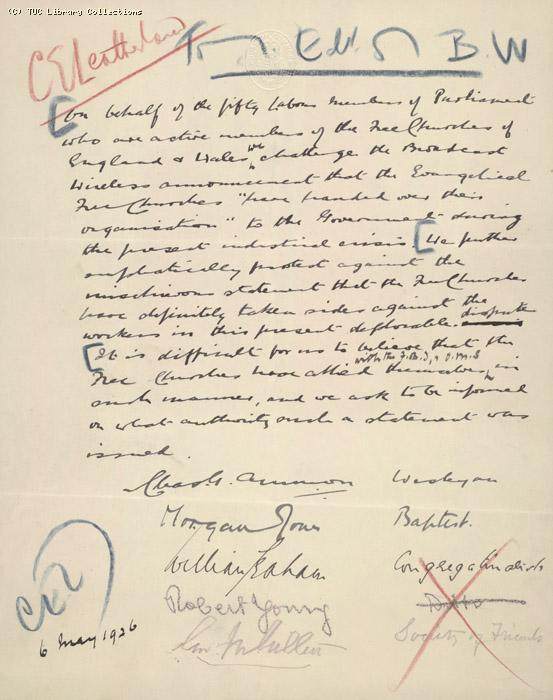 (C) TUC Library Collections
C E Leatherland
To Edr of B.W
On behalf of the fifty Labour members of Parliament
who are active members of the Free Churches of
England & Wales, we challenge the Broadcast
Wireless announcement that the Evangelical
Free Churches "have handed over their
organisation" to the Government during
the present industrial crisis. We further
emphatically protest against the
mischievous statement that the Free Churches
have definitely taken sides against the
workers in this present deplorable dispute
It is difficult for us to believe that the
with the F.B.I, & O.M.S
Free Churches have allied themselves, in
such manner, and we ask to be informed
on what authority such a statement was
issued.
Chas G. Ammon Wesleyan
Morgan Jones Baptist.
William Graham Congregationalist
Robert Young Ditto
Society of Friends
6 May 1926